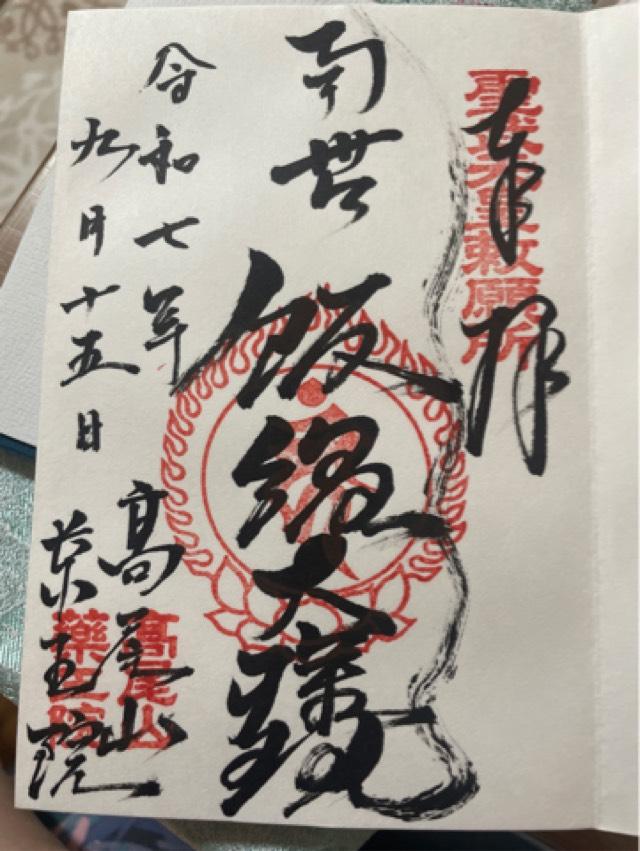 奉拝
聖武天皇勅願所
南無飯縄大権現
令和七年
九月十五日
高尾山
薬王院
高尾山
薬王院